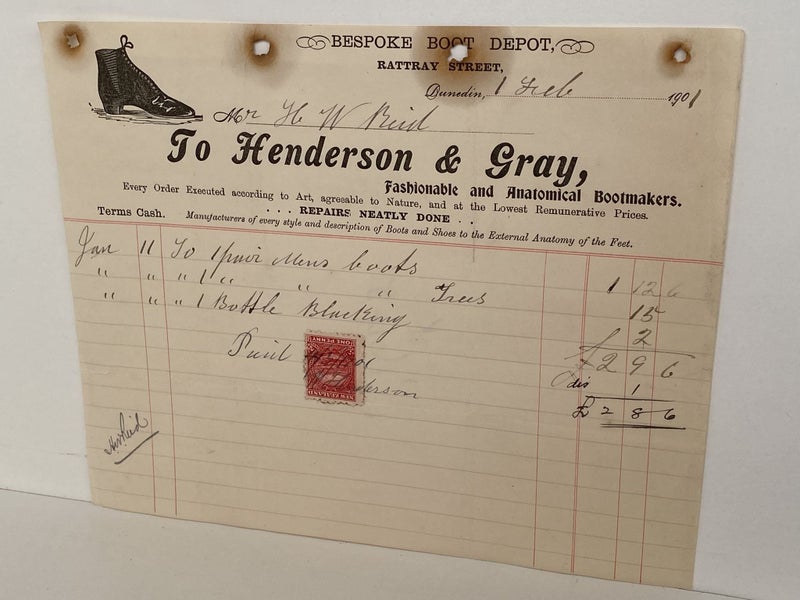 BESPOKE BOOT DEPOT,
RATTRAY STREET,
Dunedin, 1 Feb 1901
Mr H W Reid
To Henderson & Gray,
Fashionable and Anatomical Bootmakers.
Every Order Executed according to Art, agreeable to Nature, and at the Lowest Remunerative Prices.
. . . REPAIRS NEATLY DONE . .
Terms Cash. Manufacturers of every style and description of Boots and Shoes to the External Anatomy of the Feet.
Jan 11 To 1 pair Mens boots 1 12 6
" " " 1 " " Trees 15
" " " 1 Bottle Blacking 2
£2 9 6
Paid
dis 1
£ 2 8 6
ONE PENNY
NEW ZEALAND
HW Reid